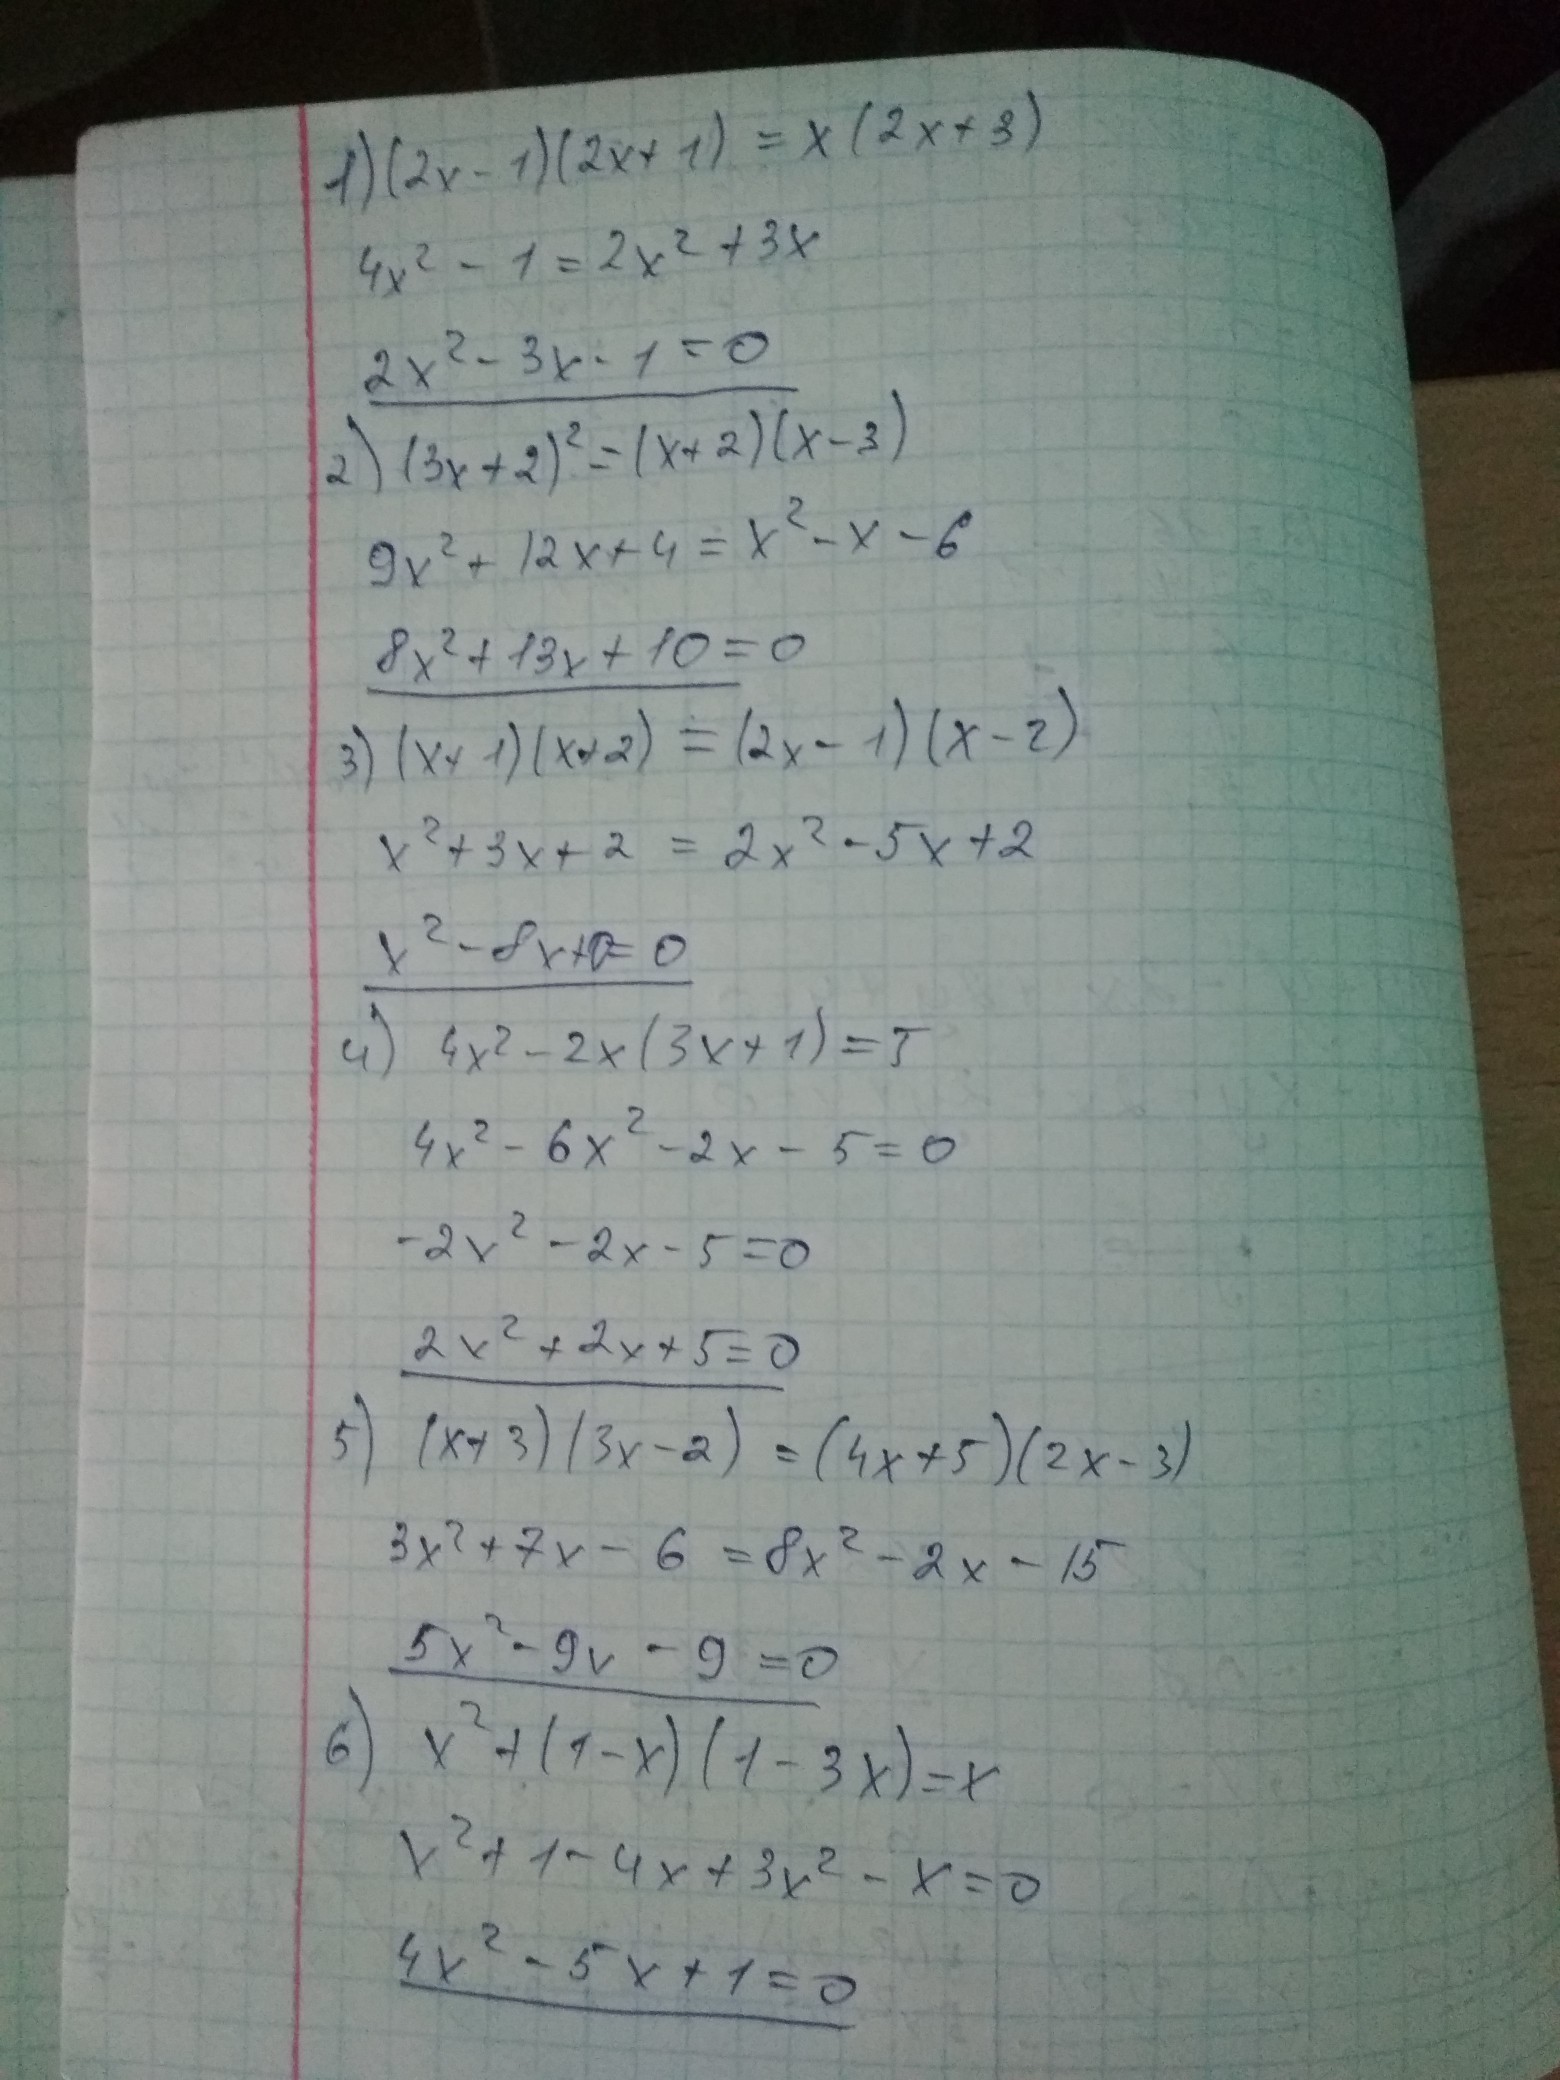 1) (2x - 1)(2x + 1) = x(2x + 3)
4x² - 1 = 2x² + 3x
2x² - 3x - 1 = 0
2) (3x + 2)² = (x + 2)(x - 3)
9x² + 12x + 4 = x² - x - 6
8x² + 13x + 10 = 0
3) (x + 1)(x + 2) = (2x - 1)(x - 2)
x² + 3x + 2 = 2x² - 5x + 2
x² - 8x + 0 = 0
4) 4x² - 2x(3x + 1) = 5
4x² - 6x² - 2x - 5 = 0
-2x² - 2x - 5 = 0
2x² + 2x + 5 = 0
5) (x + 3)(3x - 2) = (4x + 5)(2x - 3)
3x² + 7x - 6 = 8x² - 2x - 15
5x² - 9x - 9 = 0
6) x² + (1 - x)(1 - 3x) = x
x² + 1 - 4x + 3x² - x = 0
4x² - 5x + 1 = 0